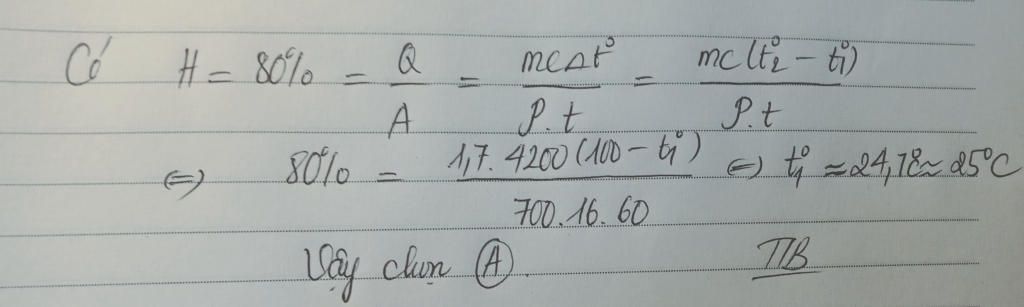 Có H = 80% = Q/A = mcΔt°/P.t = mc(t₂° − t₁°)/P.t
⇔ 80% = 1,7.4200(100 − t₁°)/700.16.60 ⇔ t₁° ≈ 24,18 ≈ 25°C
Vậy chọn Ⓐ. TTB